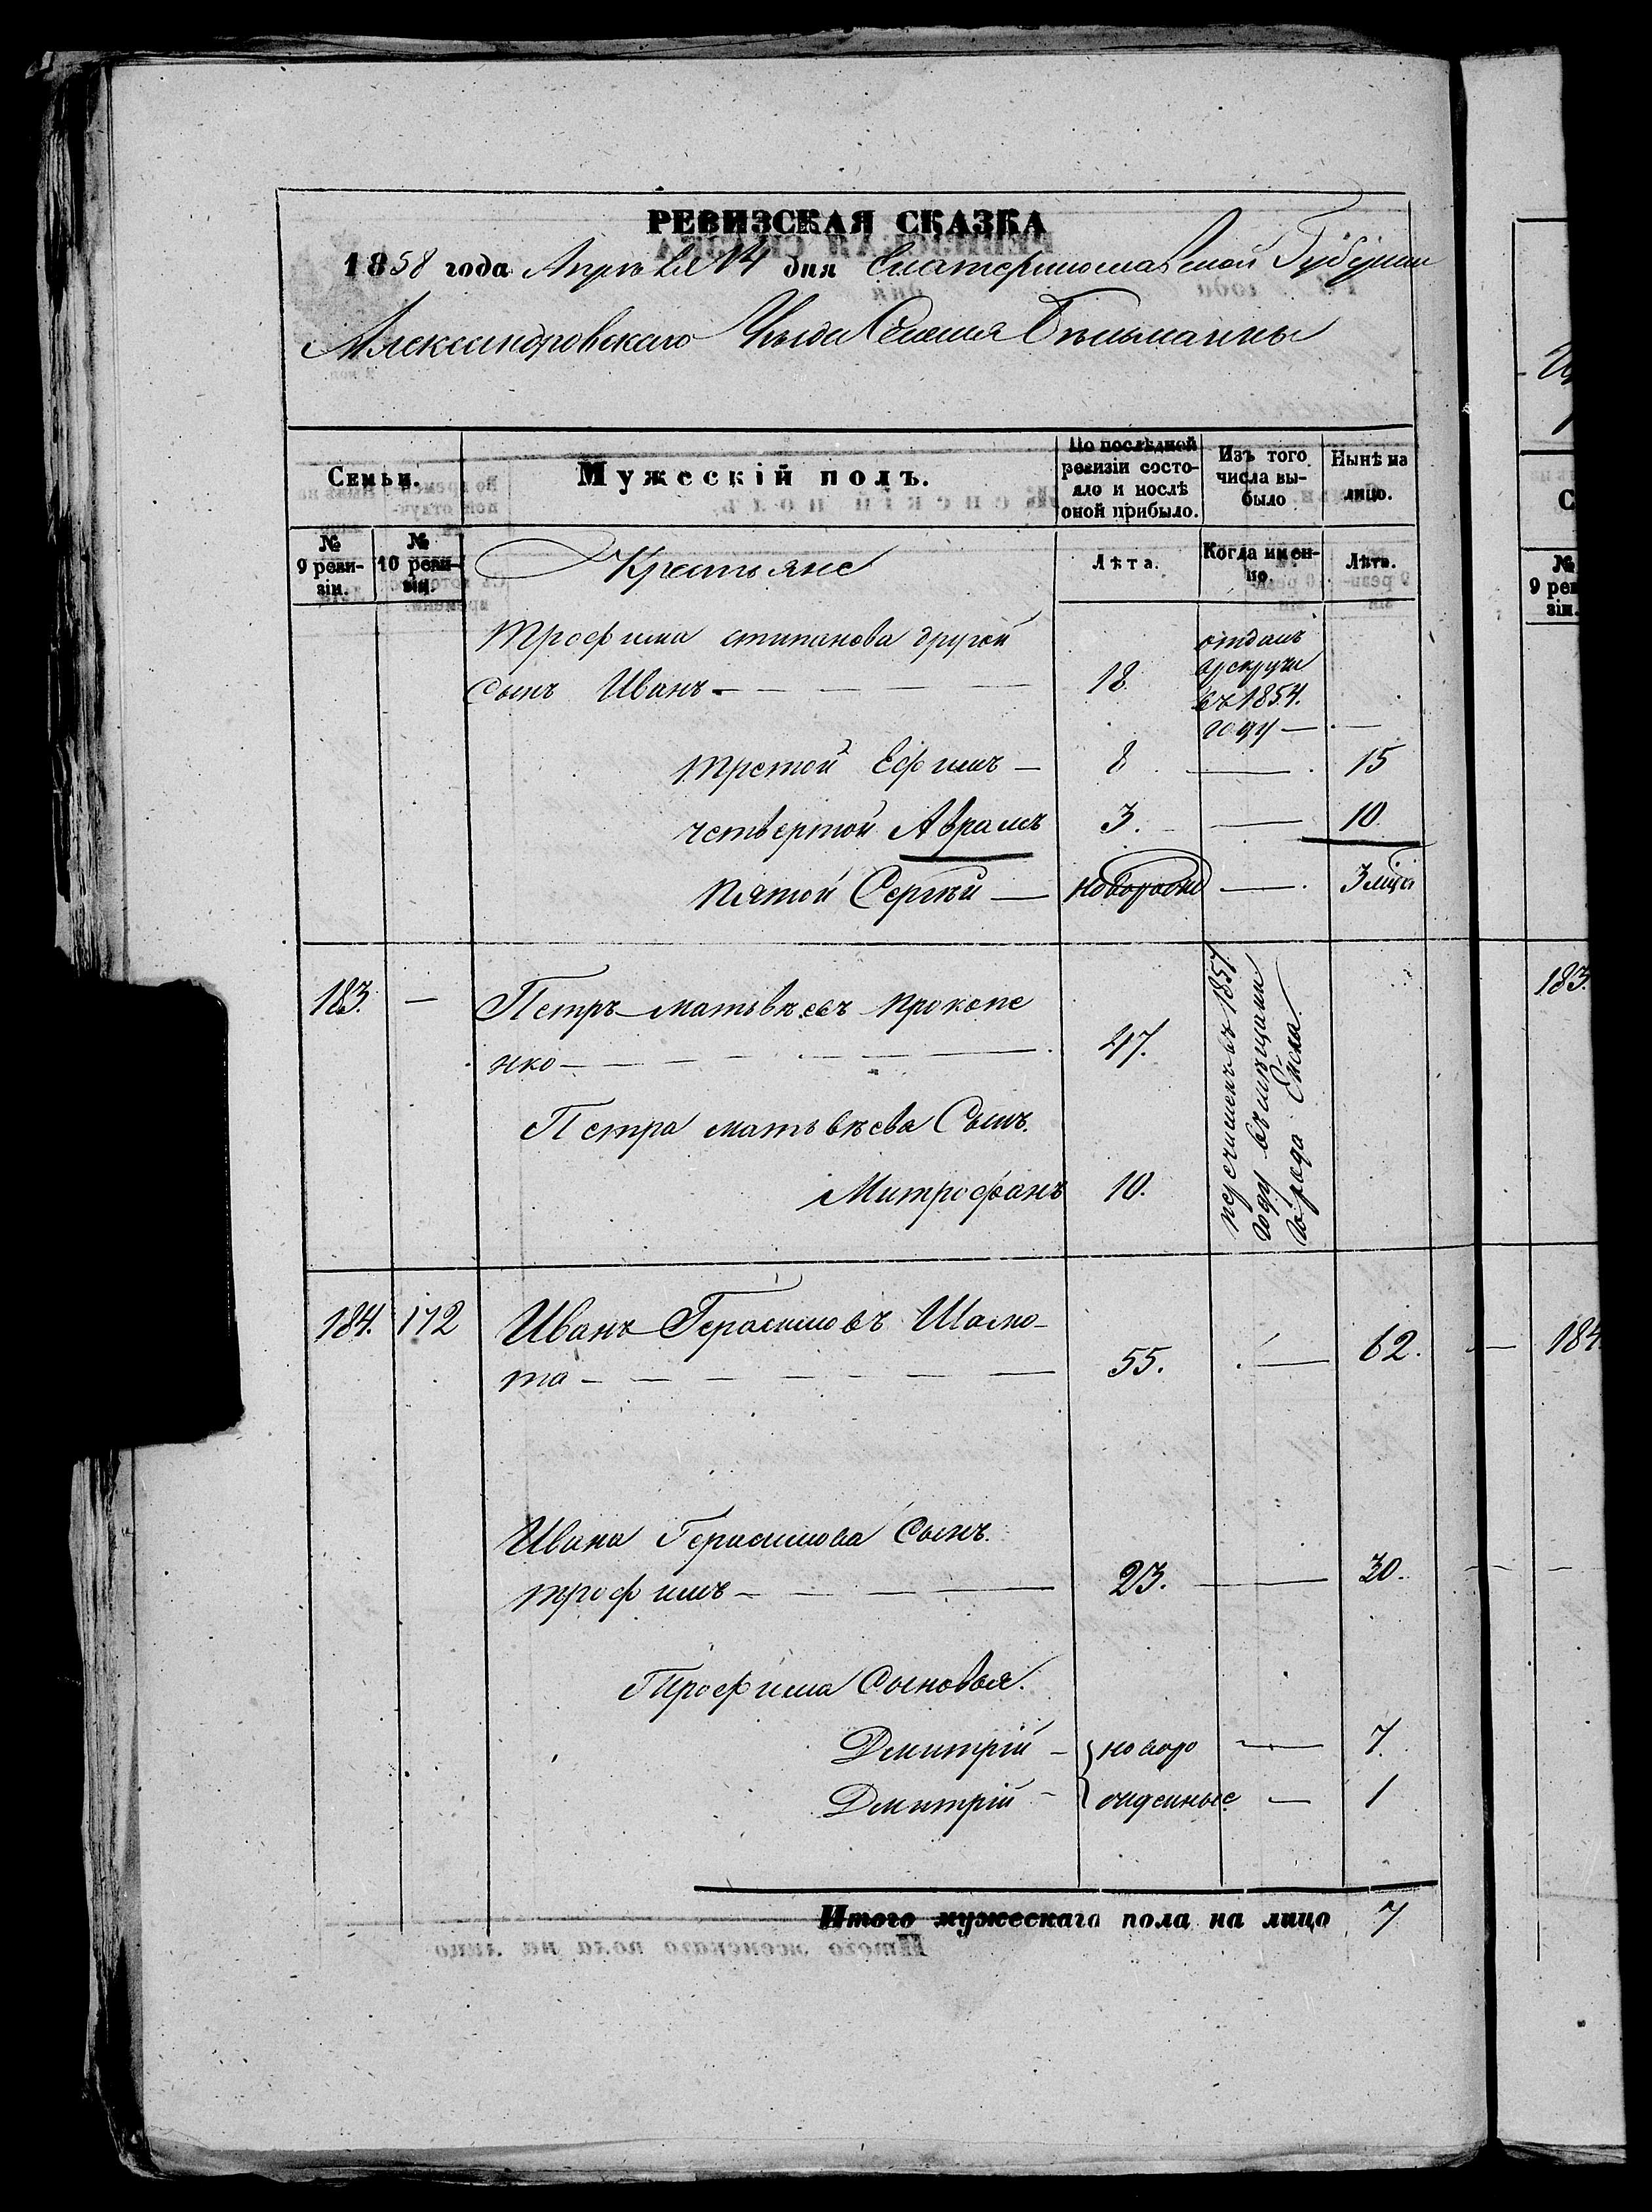 РЕВИЗСКАЯ СКАЗКА
1858 года Апреля 14 дня Екатеринославской Губернии
Александровскаго Уѣзда Селенія Бѣльманки
Семьи. Мужескій полъ. По послѣдней ревизіи состояло и послѣ оной прибыло. Изъ того числа выбыло Нынѣ на лицо.
№ 9 ревизіи. № 10 ревизіи. Крестьяне Лѣта. Когда именно. Лѣта.
Трофима Стипанова другой
сынъ Иванъ — 18 отданъ врекруты въ 1854. году —
третой Ефимъ — 8 — 15
четвертой Аврамъ 3. — 10
пятой Сергѣй — новорожд — 3 мцы
183. — Петръ Матьвѣевъ Прокопе
нко — 47. перечисленъ въ 1857 году въ мѣщани города Ейска.
Петра Матьвѣева Сынъ.
Митрофанъ 10.
184. 172 Иванъ Герасимовъ Шамо-
та — 55. — 62.
Ивана Герасимова Сынъ.
трофимъ — 23. — 30.
Трофима Сыновья.
Дмитрій — новоро — 7.
Дмитрій — жденные — 1
Итого мужескаго пола на лицо 7
183.
184
№
9 рев
зіи.